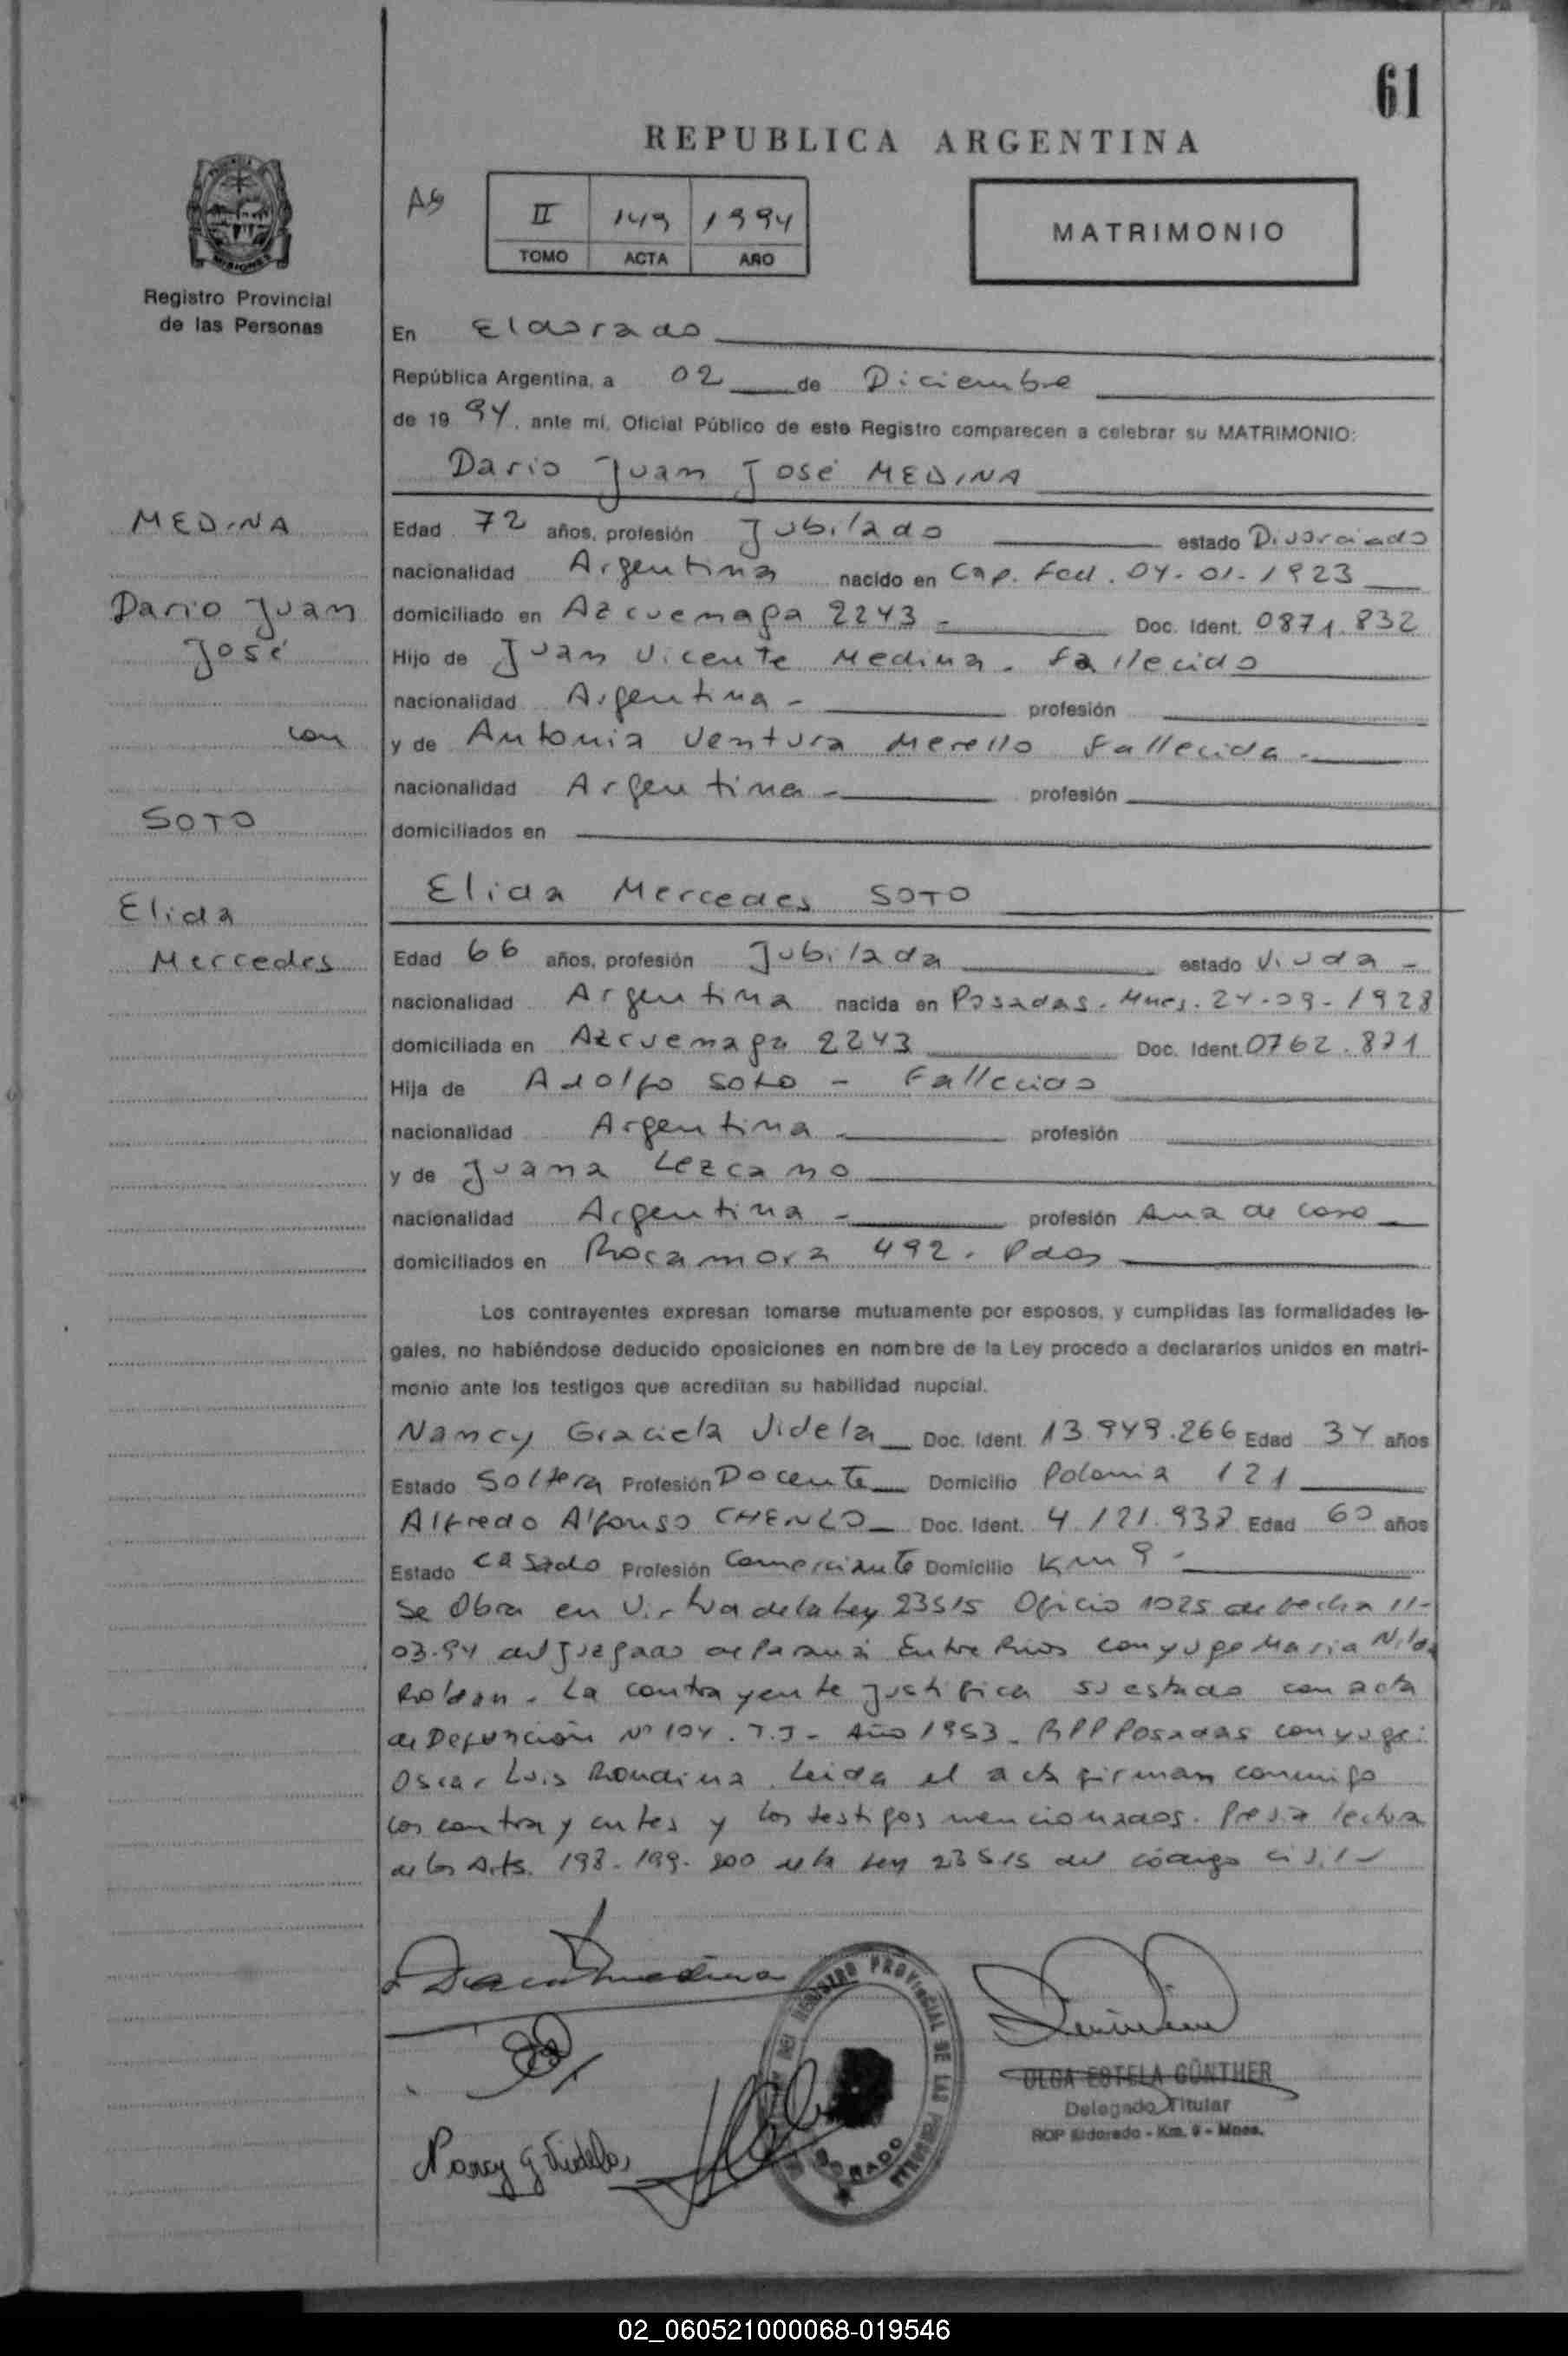 61
REPUBLICA ARGENTINA
AG
II 149 1994
TOMO ACTA AÑO
MATRIMONIO
MISIONES
Registro Provincial
de las Personas
En Eldorado
República Argentina, a 02 de Diciembre
de 19 94, ante mí, Oficial Público de este Registro comparecen a celebrar su MATRIMONIO:
Dario Juan José MEDINA
MEDINA
Dario Juan
José
con
SOTO
Elida
Mercedes
Edad 72 años, profesión Jubilado estado Divorciado
nacionalidad Argentina nacido en Cap. Fed. 04-01-1923
domiciliado en Azcuenaga 2243 - Doc. Ident. 0871.832
Hijo de Juan Vicente Medina - Fallecido
nacionalidad Argentina - profesión
y de Antonia Ventura Merello Fallecida -
nacionalidad Argentina - profesión
domiciliados en
Elida Mercedes SOTO
Edad 66 años, profesión Jubilada estado Viuda -
nacionalidad Argentina nacida en Posadas. Mnes. 24-09-1928
domiciliada en Azcuenaga 2243 Doc. Ident. 0762.871
Hija de Adolfo Soto - Fallecido
nacionalidad Argentina - profesión
y de Juana Lezcano
nacionalidad Argentina - profesión Ama de casa
domiciliados en Rocamora 492. Pdas
Los contrayentes expresan tomarse mutuamente por esposos, y cumplidas las formalidades le-
gales, no habiéndose deducido oposiciones en nombre de la Ley procedo a declararlos unidos en matri-
monio ante los testigos que acreditan su habilidad nupcial.
Nancy Graciela Videla Doc. Ident. 13.949.266 Edad 34 años
Estado Soltera Profesión Docente Domicilio Polonia 121
Alfredo Alfonso CHENLO Doc. Ident. 4.121.938 Edad 60 años
Estado Casado Profesión Comerciante Domicilio Km 9 -
Se Obra en Virtud de la Ley 23515 Oficio 1025 de fecha 11-
03-94 del Juzgado de Paraná Entre Rios conyuge Maria Nilda
Roldan. La contrayente justifica su estado con acta
de Defunción Nº 104. T.I - Año 1953 - RPP Posadas conyuge:
Oscar Luis Rondina. Leida el acta firman conmigo
los contrayentes y los testigos mencionados. Previa lectura
de los Arts. 198-199-200 de la Ley 23515 del código civil
Nancy G Videla
REGISTRO PROVINCIAL DE LAS PERSONAS
OLGA ESTELA GÜNTHER
Delegado Titular
RDP Eldorado - Km. 9 - Mnes.
02_060521000068-019546